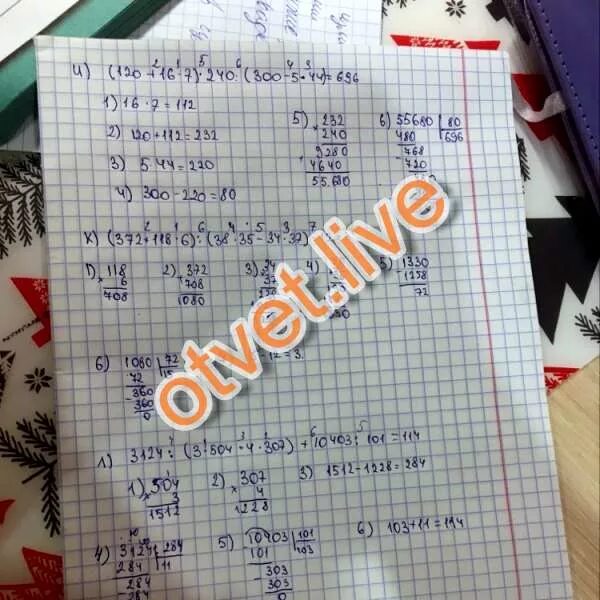 и) (120 + 16 · 7) · 240 : (300 - 5 · 44) = 696
1) 16 · 7 = 112
2) 120 + 112 = 232
3) 5 · 44 = 220
4) 300 - 220 = 80
5) × 232
240
9280
4640
55.680
6) 55680 | 80
480 | 696
768
720
к) (372 + 118 · 6) : (38 · 35 - 34 · 37)
1) × 118
6
708
2) + 372
708
1080
3)
4)
5) 1330
- 1258
72
6) 1080 | 72
72
- 360
360
0
- 12 = 3
otvet.live
л) 3124 : (3 · 504 - 4 · 307) + 10403 : 101 = 114
1) × 504
3
1512
2) × 307
4
1228
3) 1512 - 1228 = 284
4) 3124 | 284
284 | 11
284
284
5) 10403 | 101
101 | 103
- 303
303
0
6) 103 + 11 = 114